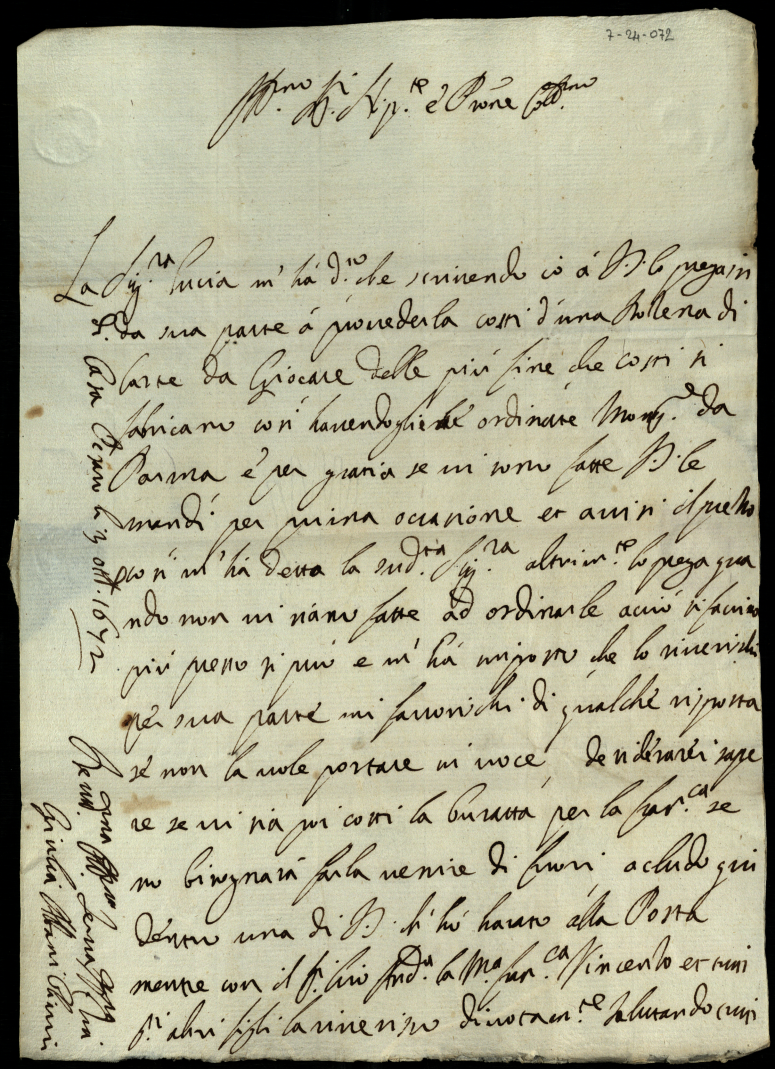 7-24-072
Ill.mo Sig.r e P.rone Coll.mo
La Sig.ra Lucia m'hà d.to che scrivendo io à V.S. lo pregassi
da sua parte à provederla costi d'una
carte da Giocare delle più fine che costi si
fabricano così havendogliele ordinate Mons.re da
Parma e per gratia se vi sono fatte V.S. le
mandi per prima occasione et avvisi il prezzo
così m'hà detto la sud.ta Sig.ra altrim.te lo prega qua
ndo non vi siano fatte ad ordinarle acciò si faccino
più presto si può e m'hà imposto che lo riverischi
per sua parte mi favorischi di qualche risposta
se non la vole portare in voce, desiderarei sape
re se vi sia poi costi la buratta per la Fran.ca se
no bisognarà farla venire di fuori acludo qui
dentro una di V.S. ch'hò havuto alla Posta
mentre con il la Fran.ca Vincenzo et tutti
altri figli la riverisco divotam.te salutando tutti
Di Casa Pesaro li 13 ott. 1672
D. V.S. Ill.ma
Giulia Albani